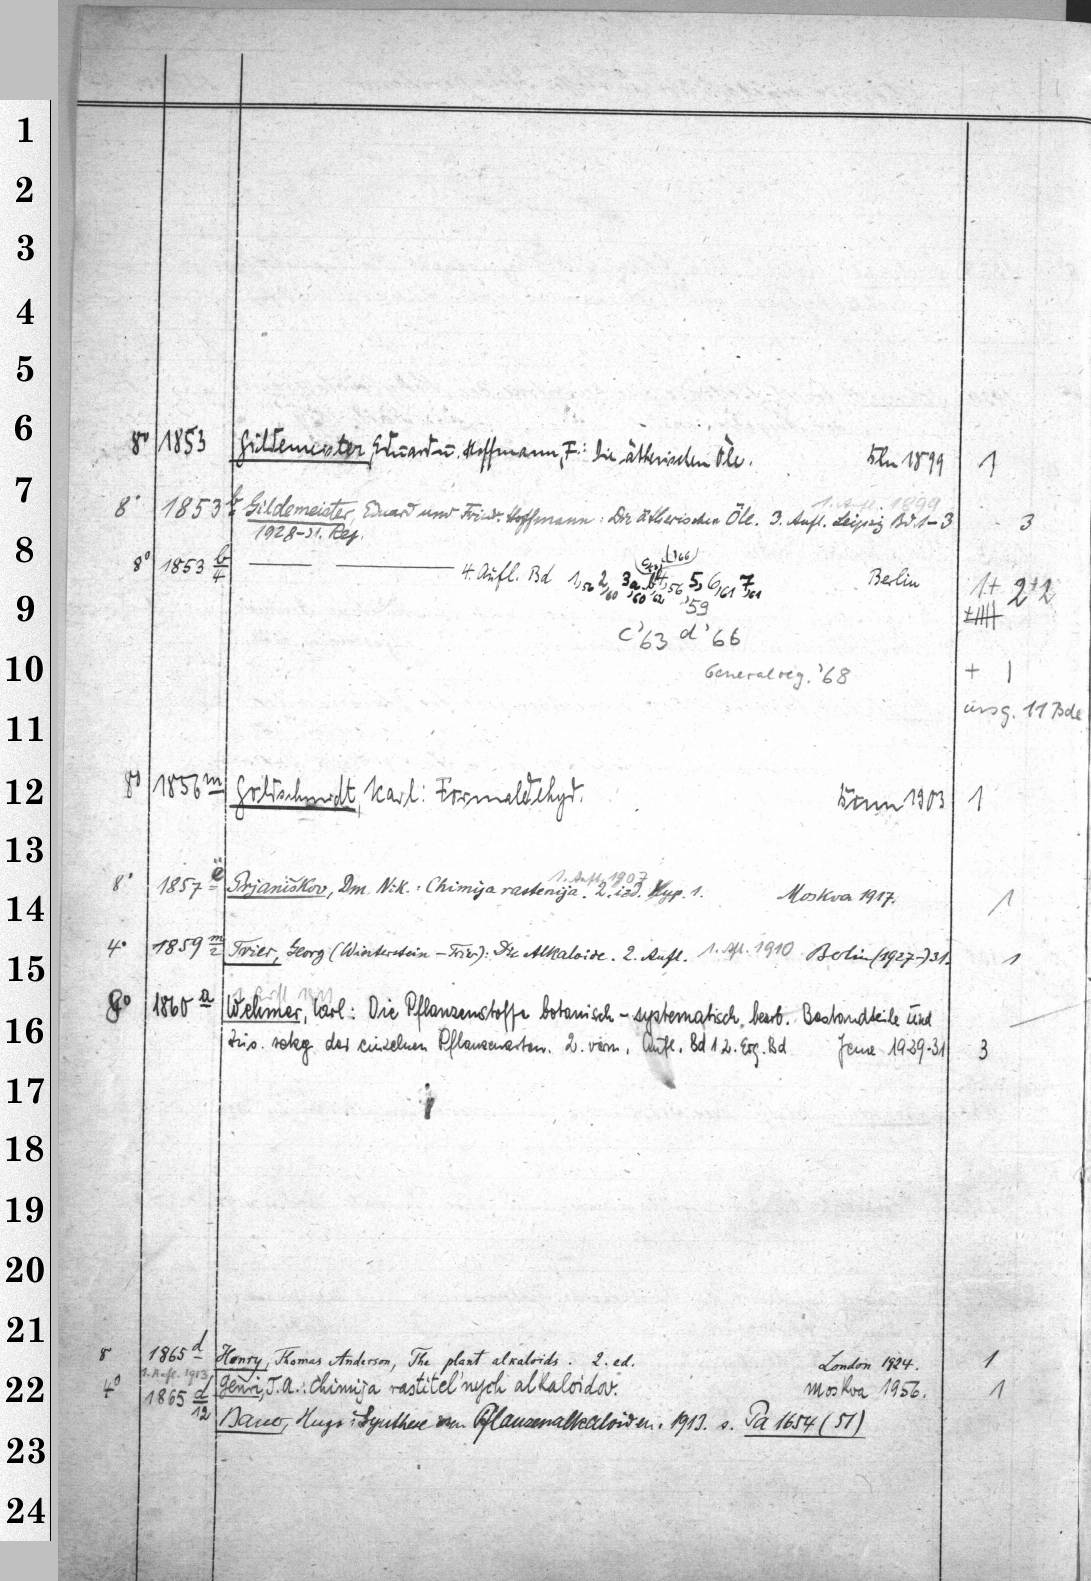 1
2
3
4
5
6
8° 1853 Gildemeister, Eduard u. Hoffmann, F.: Die ätherischen Öle. Bln 1899 1
7
1. Aufl. 1899
8° 1853 b Gildemeister, Eduard und Friedr. Hoffmann: Die ätherischen Öle. 3. Aufl. Leipzig Bd. 1–3 3
1928–31. Reg.
8
8° 1853 b/4 4. Aufl. Bd 1,56 2,60 3a,60 b,62 4,56 5,'59 6,61 7,61 Berlin 1+ 2+2
9
c'63 d'66
10
Generalreg. '68 + 1
11
insg. 11 Bde
12
8° 1856 m Goldschmidt, Karl: Formaldehyd. Bonn 1903 1
13
1. Aufl. 1907
14
8° 1857 e Prjaniškov, Dm. Nik.: Chimija rastenija. 2. izd. Vyp. 1. Moskva 1917. 1
15
4° 1859 m/2 Trier, Georg (Winterstein – Trier): Die Alkaloide. 2. Aufl. 1. Afl. 1910 Berlin (1927–)31. 1
16
8° 1860 a Wehmer, Carl: Die Pflanzenstoffe botanisch – systematisch bearb. Bestandteile und
der einzelnen Pflanzenarten. 2. verm. Aufl. Bd 1 2. Erg. Bd Jena 1929-31 3
17
18
19
20
21
8° 1865 d Henry, Thomas Anderson, The plant alkaloids. 2. ed. London 1924. 1
1. Aufl. 1913
22
4° 1865 d/12 Genri, T.A.: Chimija rastitel'nych alkaloidov. Moskva 1956. 1
Bauer, Hugo: Synthese von Pflanzenalkaloiden. 1913. s. Pa 1654 (51)
23
24